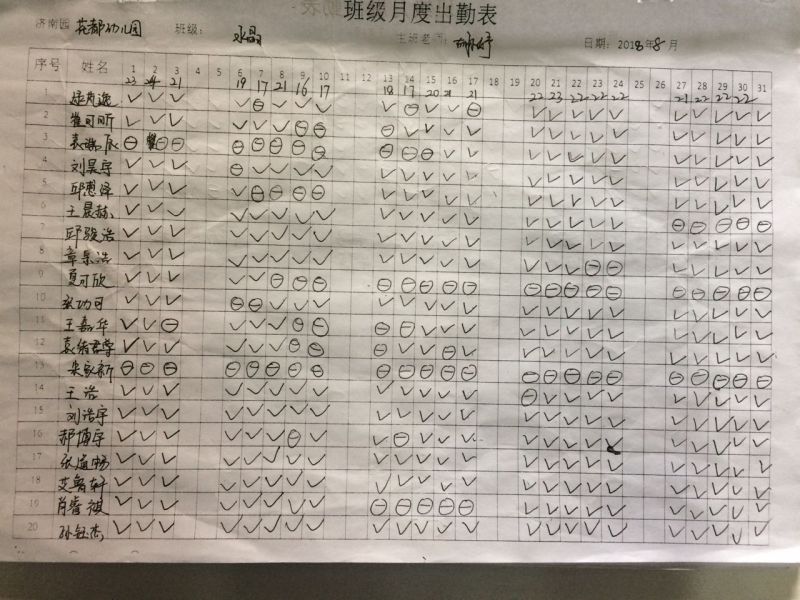 班级月度出勤表
济南园 花都幼儿园 班级: 水晶 主班老师: 日期: 2018年8月
序号 姓名 1 2 3 4 5 6 7 8 9 10 11 12 13 14 15 16 17 18 19 20 21 22 23 24 25 26 27 28 29 30 31
23 24 21 19 17 21 16 17 18 17 20 21 21 22 23 22 22 22 21 22 22 22
1
2 崔可昕
3 袁 辰
4 刘昊宇
5 邱惠泽
6 王晨赫
7 邱骏浩
8 章景浩
9 夏可欣
10 张功可
11 王嘉华
12
13 朱家新
14 王浩
15 刘浩宇
16 郝博宇
17 张道畅
18 艾鲁轩
19 肖睿被
20 孙钰杰